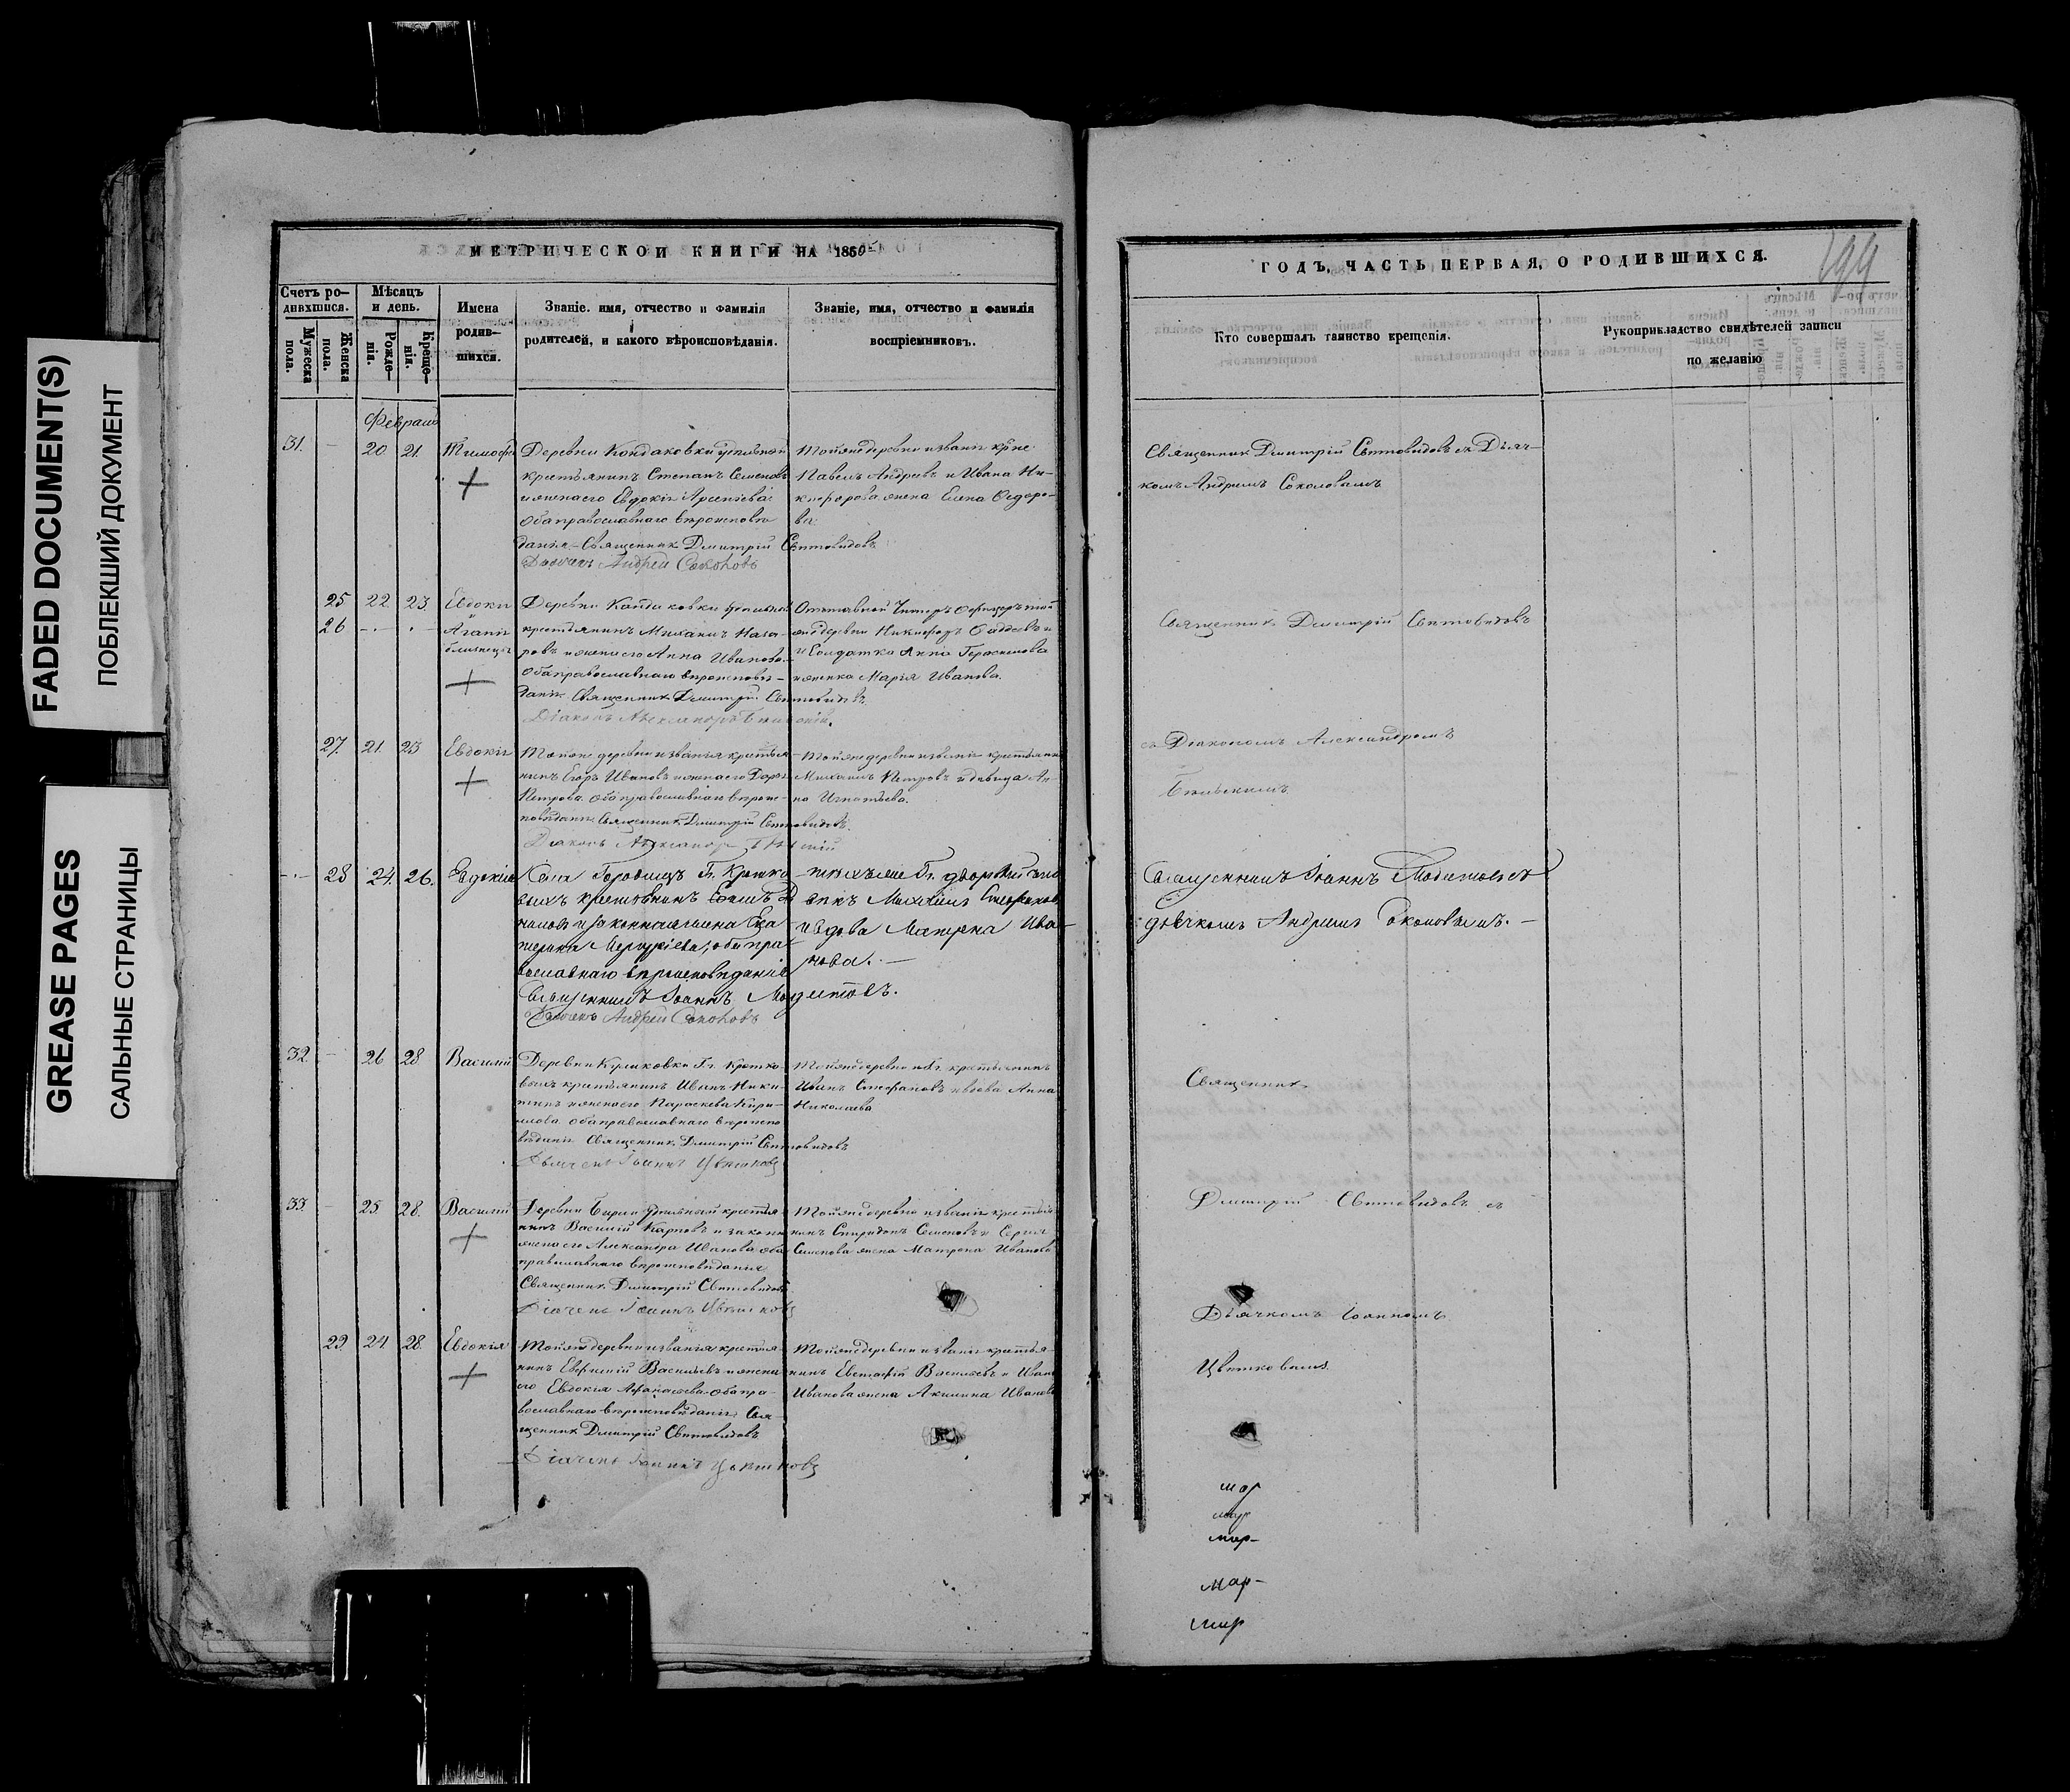 FADED DOCUMENT(S)
ПОБЛЕКШИЙ ДОКУМЕНТ
GREASE PAGES
САЛЬНЫЕ СТРАНИЦЫ
МЕТРИЧЕСКОЙ КНИГИ НА 1860
Счетъ ро-
дившихся.
Мужеска
пола.
Женска
пола.
Мѣсяцъ
и день.
Рожде-
нія.
Креще-
нія.
Имена
родив-
шихся.
Званіе, имя, отчество и фамилія
родителей, и какого вѣроисповѣданія.
Званіе, имя, отчество и фамилія
воспріемниковъ.
Февраль
31. – 20 21. Тимофей
Деревни Кондаковки удѣльной
крестьянинъ Степанъ Семеновъ
и жена его Евдокія Арсеніева
оба православнаго вѣроисповѣ
данія – Священникъ Дмитрій Свѣтовидовъ
Дьячекъ Андрей Соколовъ
Тойже деревни и званія
Павелъ Андреевъ и Ивана Ни-
кифорова жена Елена Ѳедоро-
ва.
25 22 23 Евдокія
26 Агапія
близнецы
Деревни Кондаковки удѣльной
крестьянинъ Михаилъ Наза-
ровъ и жена его Анна Иванова
оба православнаго вѣроисповѣ-
данія. Священникъ Дмитрій Свѣтовидовъ.
Діаконъ Александръ
Отставной Унтеръ Офицеръ той
же деревни Никифоръ
и Солдатка Анна Герасимова
женка Марія Иванова.
27. 21. 23 Евдокія
Тойже деревни и званія крестья-
нинъ Егоръ Ивановъ и жена его Дарья
Петрова. оба православнаго вѣроис-
повѣданія Священникъ Дмитрій Свѣтовидовъ.
Діаконъ Александръ
Тойже деревни и званія крестьянинъ
Михаилъ Петровъ и дѣвица Ан-
на Игнатьева.
28 24. 26. Евдокія
Села Городищъ Гг. Кротко
выхъ крестьянинъ
и законная жена Ека
терина Меркуріева, оба пра-
вославнаго вѣроисповѣданія
Священникъ Іоаннъ Модестовъ.
Дьячекъ Андрей Соколовъ
тѣхъ же Гг. дворовый
Михаилъ Стефановъ
и вдова Матрена Ива-
нова. –
32. – 26 28 Василій
Деревни Куликовки Гг. Кротко-
выхъ крестьянинъ Иванъ Ники-
тинъ и жена его Параскева Кири-
лова. оба православнаго вѣроиспо
вѣданія Священникъ Дмитрій Свѣтовидовъ
Дьячекъ Іоаннъ Цвѣтковъ
Тойже деревни и Гг. крестьянинъ
Иванъ Стефановъ и вдова Анна
Николаева
33. – 25. 28. Василій
Деревни Бирли удѣльный крестья
нинъ Василій Карповъ и законн
жена его Александра Иванова оба
православнаго вѣроисповѣданія
Священникъ Дмитрій Свѣтовидовъ
Дьячекъ Іоаннъ Цвѣтковъ
Тойже деревни и званія крестья
нинъ Спиридонъ Семеновъ и Сергія
Семенова жена Матрона Иванова
29 24 28. Евдокія
Тойже деревни и званія крестья
нинъ Евфимій Васильевъ и жена
его Евдокія Афанасьева. оба пра-
вославнаго вѣроисповѣданія. Свя-
щенникъ Дмитрій Свѣтовидовъ
Дьячекъ Іоаннъ Цвѣтковъ
Тойже деревни и званія крестья-
нинъ Евстафій Васильевъ и Ивана
Иванова жена Акилина Иванова
ГОДЪ, ЧАСТЬ ПЕРВАЯ, О РОДИВШИХСЯ.
199
Кто совершалъ таинство крещенія.
Рукоприкладство свидѣтелей записи
по желанію
Священникъ Дмитрій Свѣтовидовъ съ Дьяч-
комъ Андреемъ Соколовымъ
Священникъ Дмитрій Свѣтовидовъ
съ Діакономъ Александромъ
Священникъ Іоаннъ Модестовъ съ
дьячкомъ Андреемъ Соколовымъ. –
Священникъ
Дмитрій Свѣтовидовъ съ
Дьячкомъ Іоанномъ
Цвѣтковымъ
мар
мар
мар-
мар-
мар